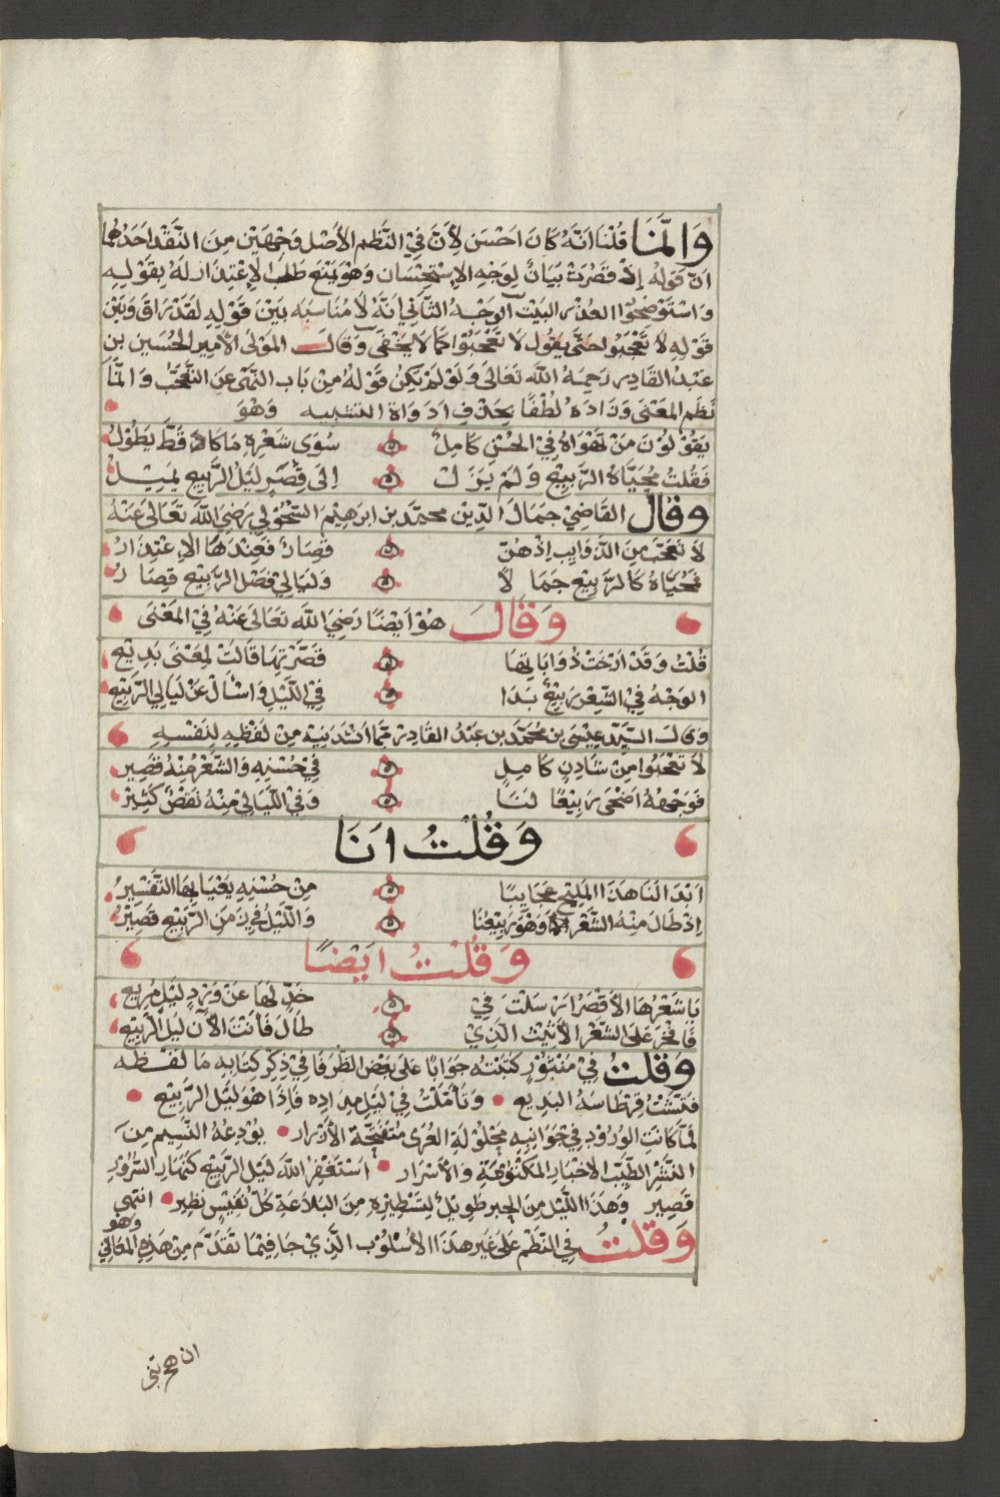 وَانَّمَا قُلْنَا انَّهُ كَانَ احْسَن لِأَنَّ فِيْ النَّظم الأَصْل وَجْهَيْن مِنَ النَّقْد احَدُهُمَا
انّ قَولهُ إِذْ قَصُرَتْ بَيَانٌ لِوَجْهِ الإِسْتِحْسَان وَهْوَ يَمْنَع طَلَبَ الإِعْتِذَار لهُ بِقَوْلِهِ
وَاسْتَوْضِحُوْا العذْر البَيْت الوَجْهُ الثَّانِي انّهُ لَا مُنَاسَبَه بَيْنَ قَوْلِهِ لَقَدْ رَاقَ وَبَيْن
قَوْلِهِ لَا تَعْجَبُوا حَتَّى يَقُول لَا تَعْجَبُوا كَمَا لَا يَخْفَى وَقَالَ المَوْلَى الأَمِير الحُسَين بن
عَبْدُ القَادِر رَحِمَهُ اللَّه تَعَالَى وَلَوْ لَمْ يَكُن قَوْلهُ مِنْ بَاب النَّهْي عَن التَّعَجُّب وَانَّمَا
نَظَم المَعْنَى وَزَادَهُ لُطْفًا بِحَذْفِ ادَوَاة التشبيه وَهْوَ
يَقُوْلُوْنَ مَنْ تَهْوَاهُ فِيْ الحُسْنِ كَامِلٌ سُوَى شَعْرِهِ مَا كَانَ قَطّ يَطُوْلُ
فَقُلْتُ مُحَيَّاهُ الرَّبِيْعُ وَلَمْ يَزَلْ إِلَى قِصَرٍ لَيْلُ الرَّبِيعِ يَمِيْلُ
وَقَالَ القَاضِيْ جَمَال الدِّين محمّد بن ابرهيْم السّحُوْلِي رَضِيَ اللَّه تَعَالَى عَنْهُ
لَا تَعْجَبْ مِنَ الذَّوَايِب اِذْ هُنّ قِصَارٌ فَعِنْدَهَا الاِعْتِذَارُ
فَمُحَيَّاهُ كَالرَّبِيْعِ جَمَالًا وَلَيَالِيْ فَصْل الرَّبِيْعِ قِصَارُ
وَقَالَ هُوْ ايْضًا رَضِيَ اللَّه تَعَالَى عَنْهُ فِيْ المَعْنَى
قُلْتُ وَقَدْ ارْخَتْ ذُوَابَاتِهَا قَصَّرْتِهَا قَالَتْ لِمَعْنَى بَدِيْع
الوَجْهُ فِيْ الشّعْر رَبِيْعٌ بَدَا فِيْ اللَّيْلِ وَاسْأَلْ عَنْ لَيَالِي الرَّبِيْع
وَقَالَ السَّيِّد عِيْسَى بن مُحَمَّد بن عَبْدُ القَادِر مِمَّا انْشَدَنِيْهِ مِنْ لَفْظِهِ لِنَفْسِهِ
لَا تَعْجَبُوا مِنْ شَادِنٍ كَامِلٍ فِيْ حُسْنِهِ وَالشَّعْرُ مِنْهُ قَصِير
فَوَجْهُهُ اضْحَى رَبِيْعًا لَنَا وَفِيْ اللَّيَالِيْ مِنْهُ نَقْصٌ كَثِيْر
وَقُلْتُ انَا
ابْدَا لَنَا هَذَا المَلِيْح عَجَايِبًا مِنْ حُسْنِهِ يَعْيَا بِهَا التَّفْسِيْرُ
اِذْ طَالَ مِنْهُ الشَّعْر وَهْوَ رَبِيْعُنَا وَاللَّيْلُ فِيْ زَمَن الرَّبِيْعِ قَصِيْرُ
وَقُلْتُ ايْضًا
يَا شَعْرُهَا الأَقْصَر ارْسَلْتَ فِيْ خَدٍّ لَهَا عَنْ وَرْدٍ لَيْل مُرِيع
فَافْخَر عَلَى الشَّعْر الأَثِيْثِ الَّذِيْ طَالَ فَأَنْتَ الآن لَيْل الرَّبِيْع
وَقُلْتُ فِيْ مَنْثُوْرٍ كَتَبْتُه جَوَابًا عَلَى بَعْض الظُّرَفَا فِيْ ذِكْر كِتَابِهِ مَا لَفْظُه
فَتَّشْتُ قِرْطَاسَهُ البَدِيع وَتَأَمَّلْتُ فِيْ لَيْل مِدَادِه فَاِذَا هُوَ لَيْل الرَّبِيْع
لَمَّا كَانَتِ الوُرُوْد فِيْ جَوَانِبِهِ مَحْلُوْلَةِ العُرَى مُتَفَتِّحَة الأَزْرَار يُوْدِعهُ النَّسِيم مِنَ
النَّشْرِ الطَّيِّب الاخْبَار المَكْتُوْمَةِ وَالأَسْرَار اسْتَغْفِرُ اللَّه لَيْل الرَّبِيْعِ كَنَهَار السُّرُوْرِ
قَصِير وَهَذَا اللَّيْل مِنَ الحِبر طَوِيْلٌ لِتَسْطِيْرِهِ مِنَ البَلَاغَةِ كُلّ نَفِيْسٍ نَظِير انتهى
وَقُلْتُ فِي النَّظْم عَلَى غَيْر هَذَا الأُسْلُوْب الَّذِيْ جَا فِيْمَا تَقَدَّم مِنْ هَذِهِ المَعَانِي وَهُو